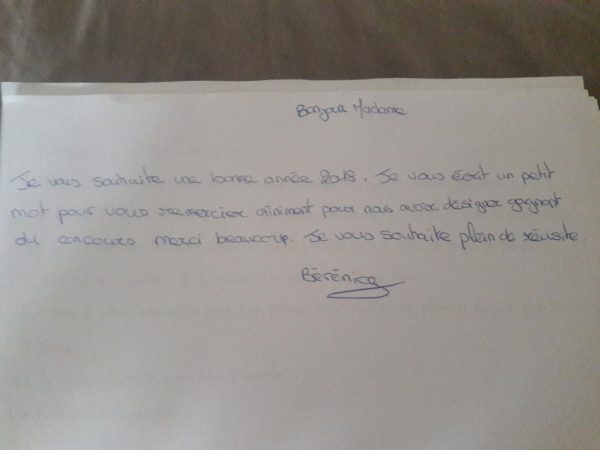 Bonjour Madame
Je vous souhaite une bonne année 2018. Je vous écrit un petit
mot pour vous remercier infiniment pour nous avoir désigner gagnant
du concours merci beaucoup. Je vous souhaite plein de réusite.
Bérénice